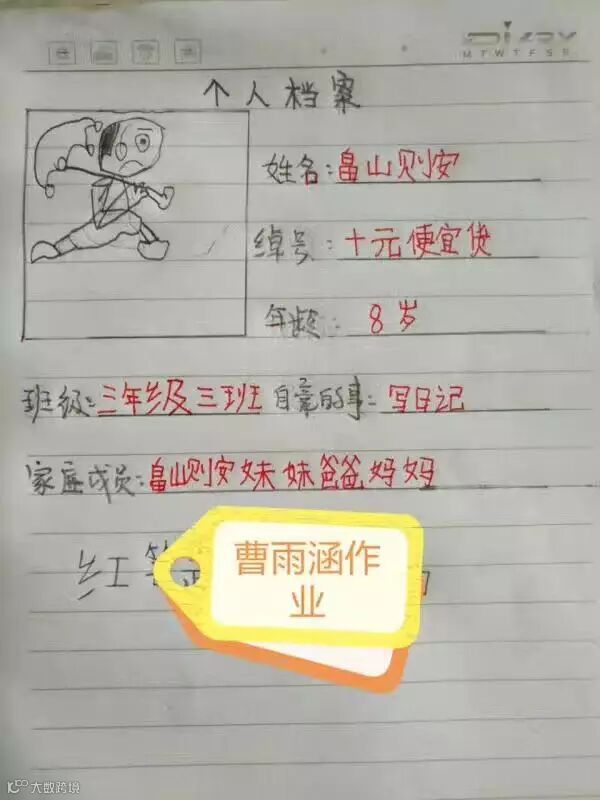 DIARY
M T W T F S S
个人档案
姓名:畠山则安
绰号:十元便宜货
年龄:8岁
班级:三年级三班 自豪的事:写日记
家庭成员:畠山则安妹妹爸爸妈妈
红笔
曹雨涵作
业
大数跨境